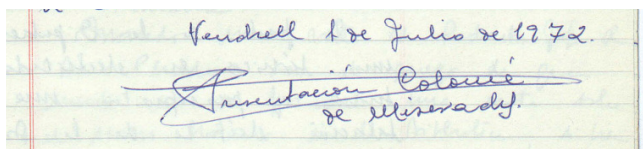 Vendrell 1 de Julio de 1972.
Presentación Colomé
de Miserachs.